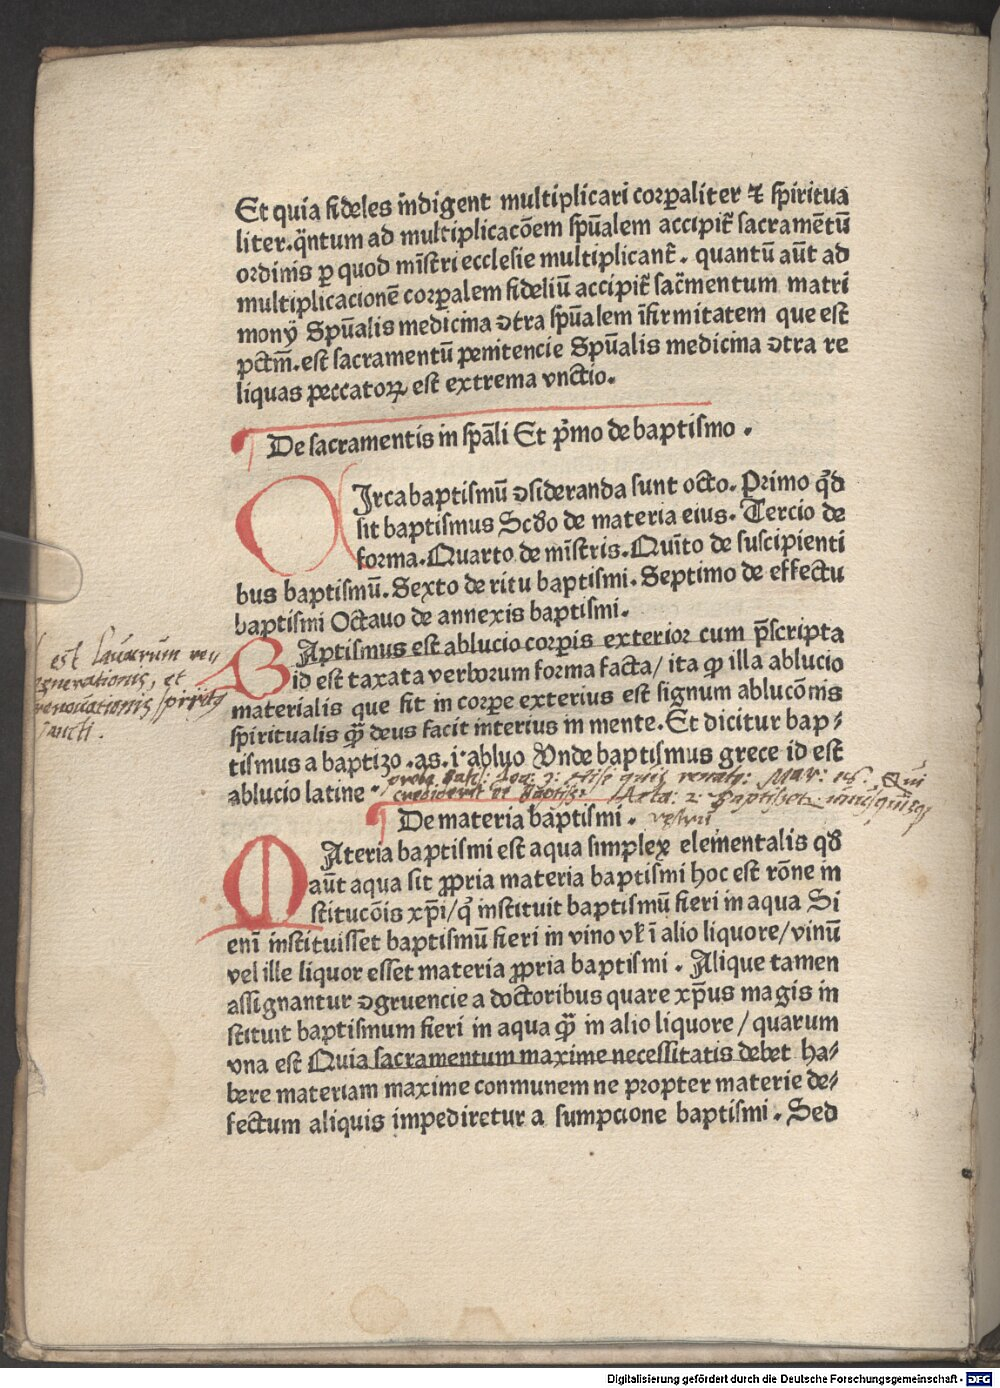 Et quia fideles indigent multiplicari corꝑaliter ⁊ spiritua
liter. q̈ntum ad multiplicacōem spūalem accipit̃ sacramētū
ordinis ꝑ quod mīstri ecclesie multiplicant̃. quantū aūt ad
multiplicacionē corꝑalem fideliū accipit̃ sac̃mentum matri
monÿ Spūalis medicina ꝯtra spūalem īfirmitatem que est
pctm̄. est sacramentū penitencie Spūalis medicina ꝯtra re
liquas peccatoꝝ est extrema vnctio.
De sacramentis in spāli Et pͥmo de baptismo.
CIrca baptismū ꝯsideranda sunt octo. Primo qͥd
sit baptismus Scd̄o de materia eius. Tercio de
forma. Quarto de mīstris. Quīto de suscipienti
bus baptismū. Sexto de ritu baptismi. Septimo de effectu
baptismi Octauo de annexis baptismi.
BAptismus est ablucio corꝑis exterior cum p̄scripta
id est taxata verborum forma facta/ ita ꝙ illa ablucio
materialis que fit in corꝑe exterius est signum ablucōnis
spiritualis quā deus facit interius in mente. Et dicitur bap⸗
tismus a baptizo .as. i. abluo Vnde baptismus grece id est
ablucio latine
est lauacrum re⸗
generationis, et
renouationis spiritus
sancti.
Joa: 3: Nisi quis renat: Mar: 16. Qui
crediderit et baptis: Acta: 2: Baptisetur unusquisq
vestrū
De materia baptismi.
MAteria baptismi est aqua simplex elementalis qd̄
aūt aqua sit ꝓpria materia baptismi hoc est rōne in
stitucōis xp̄i/ qͥ instituit baptismū fieri in aqua Si
enī instituisset baptismū fieri in vino vl̄ ī alio liquore/ vinū
vel ille liquor esset materia ꝓpria baptismi. Alique tamen
assignantur ꝯgruencie a doctoribus quare xp̄us magis in
stituit baptismum fieri in aqua quā in alio liquore/ quarum
vna est Quia sacramentum maxime necessitatis debet ha⸗
bere materiam maxime conmunem ne propter materie de⸗
fectum aliquis impediretur a sumpcione baptismi. Sed
Digitalisierung gefördert durch die Deutsche Forschungsgemeinschaft - DFG